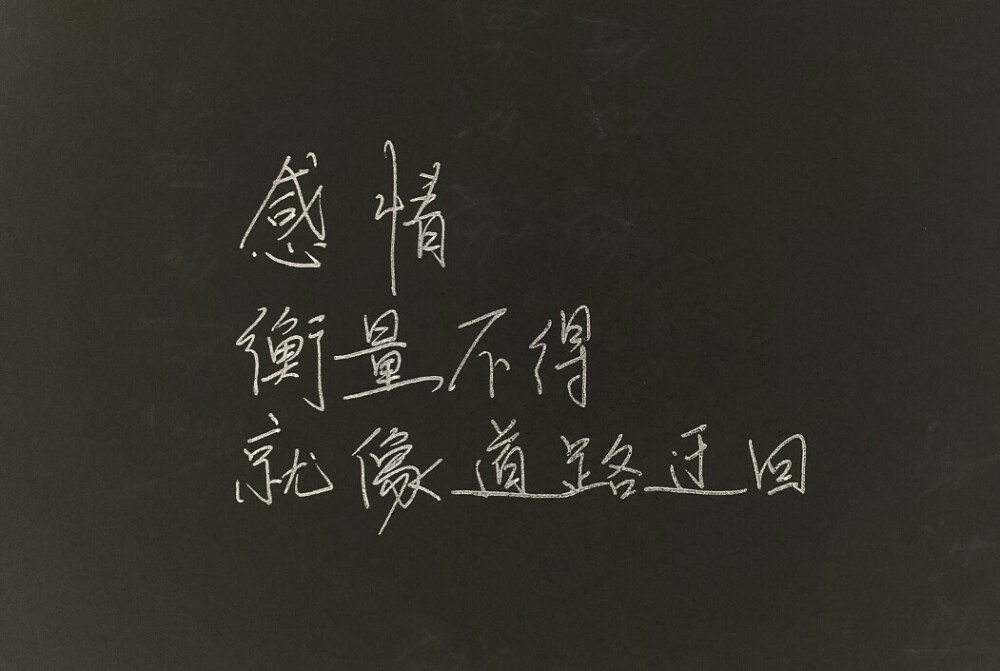 感情
衡量不得
就像道路迂回